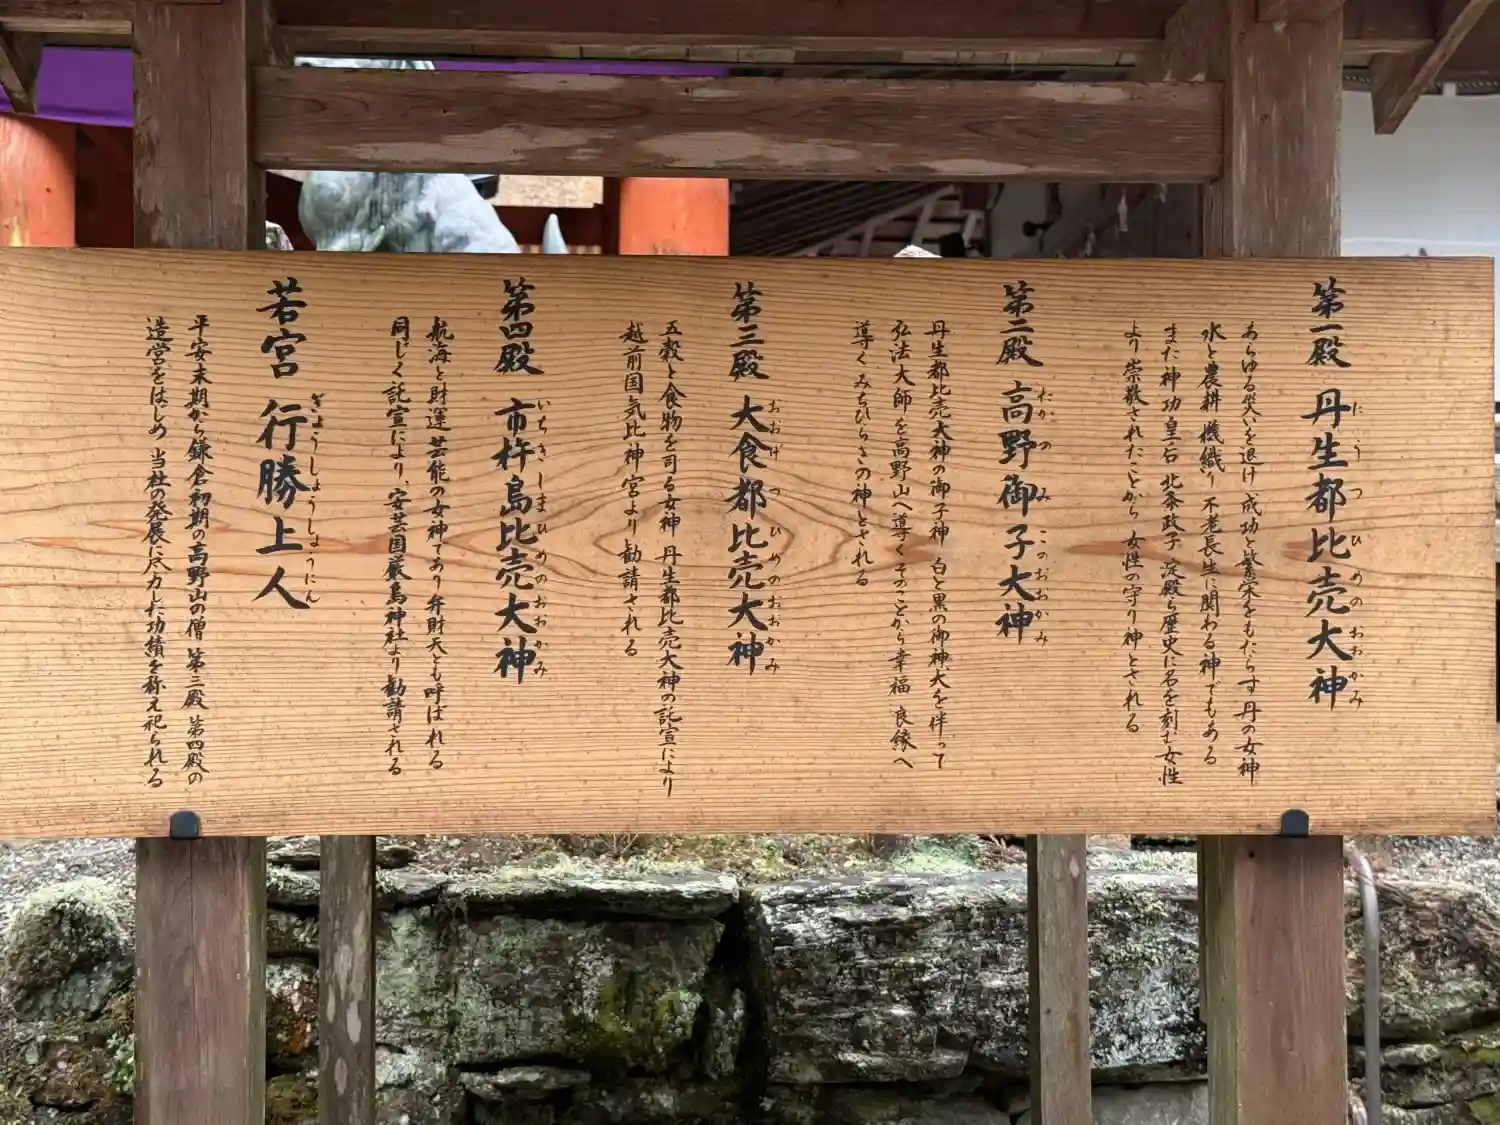 第一殿 丹生都比売大神
にうつひめのおおかみ
あらゆる災いを退け 成功と繁栄をもたらす丹の女神
水と農耕 機織り 不老長生に関わる神でもある
また神功皇后 北条政子 淀殿ら歴史に名を刻む女性
より崇敬されたことから 女性の守り神とされる
第二殿 高野御子大神
たかのみこのおおかみ
丹生都比売大神の御子神 白と黒の御神犬を伴って
弘法大師を高野山へ導くそのことから幸福 良縁へ
導くみちびらきの神とされる
第三殿 大食都比売大神
おおげつひめのおおかみ
五穀と食物を司る女神 丹生都比売大神の託宣により
越前国気比神宮より勧請される
第四殿 市杵島比売大神
いちきしまひめのおおかみ
航海と財運 芸能の女神であり弁財天とも呼ばれる
同じく託宣により、安芸国厳島神社より勧請される
若宮 行勝上人
ぎょうしょうしょうにん
平安末期から鎌倉初期の高野山の僧 第三殿 第四殿の
造営をはじめ 当社の発展に尽力した功績を称え祀られる